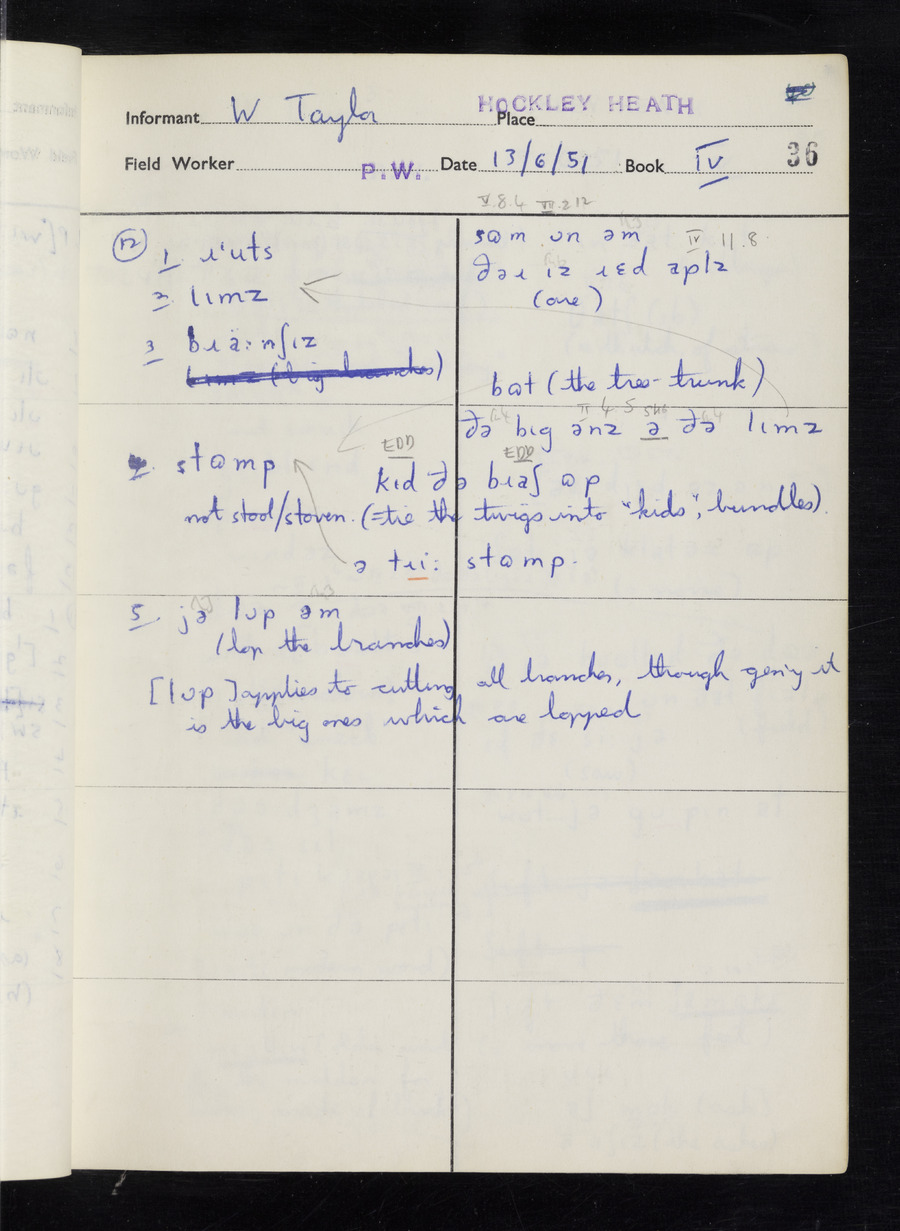 Informant W Taylor Place HOCKLEY HEATH
Field Worker P.W. Date 13/6/51 Book IV 36
V.8.4 VII.2.12
12
1. ɹʊ'uts
2. lɪmz
3 bɹäːnʃɪz
sɷm ɒn əm IV 11.8
ðəɪ ɪz ɹɛd apl̩z
(are)
bɷt (the tree-trunk)
ðə bɪg ənz ə ðə lɪmz
4. stɷmp
EDD EDD
kɪd ðə bɹaʃ ɷp
not stool/stoven. (=tie the twigs into "kids", bundles).
ə tɹiː stɷmp.
5. jə lɒp əm
(lop the branches)
[lɒp] applies to cutting all branches, though gen'y it
is the big ones which are lopped